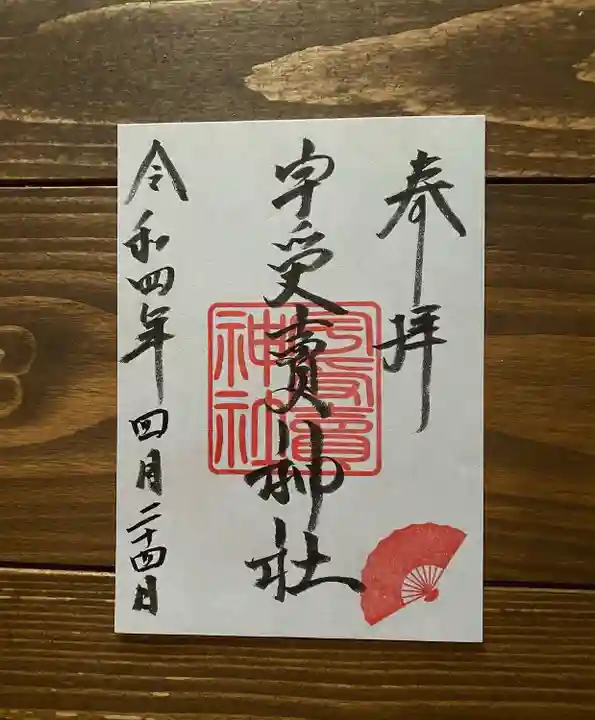 奉拝
宇受賣神社
宇受賣
神社
令和四年四月二十四日